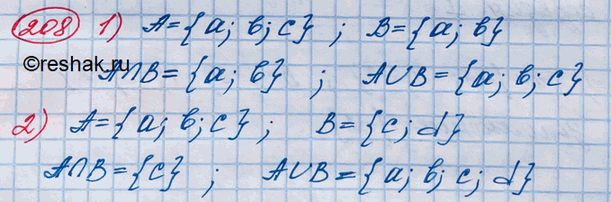 208 1) A={a; b; c} ; B={a; b}
©reshak.ru
A∩B={a; b} ; A∪B={a; b; c}
2) A={a; b; c} ; B={c; d}
A∩B={c} ; A∪B={a; b; c; d}